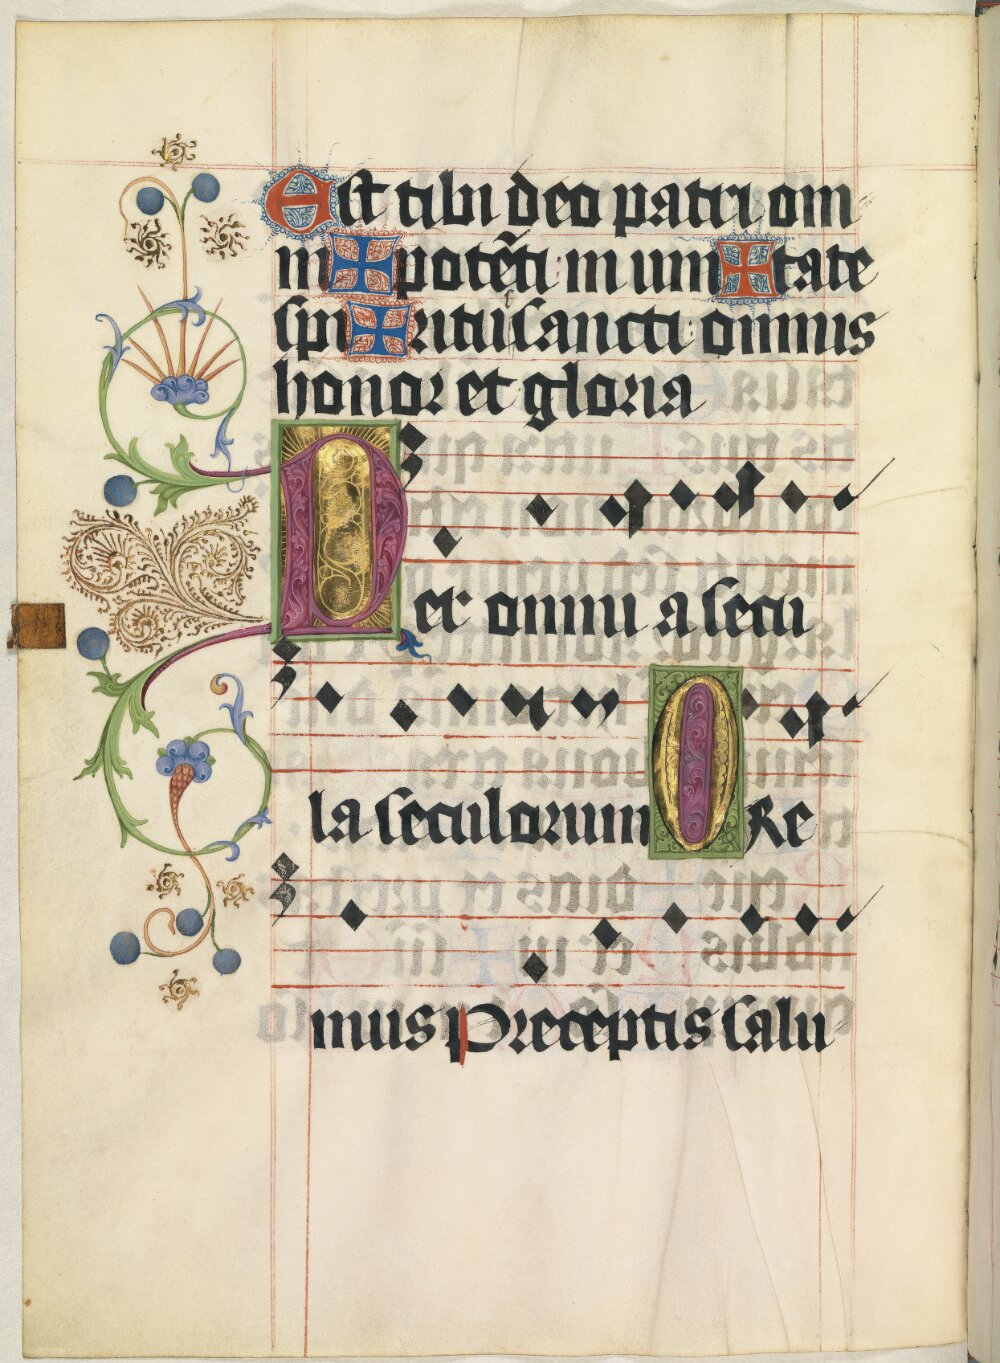 Est tibi deo patri om
ni ✠ potēti in uni ✠ tate
spi ✠ ritus sancti omnis
honor et gloria
Per omnia secu
la seculorum ORe
mus Preceptis salu